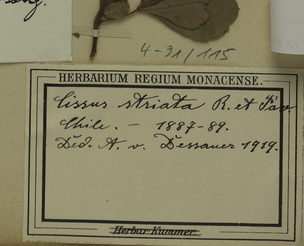 4-91/115
HERBARIUM REGIUM MONACENSE.
Cissus striata R. et Pav.
Chile. – 1887-89.
Ded. A. v. Dessauer 1919.
Herbar Kummer.